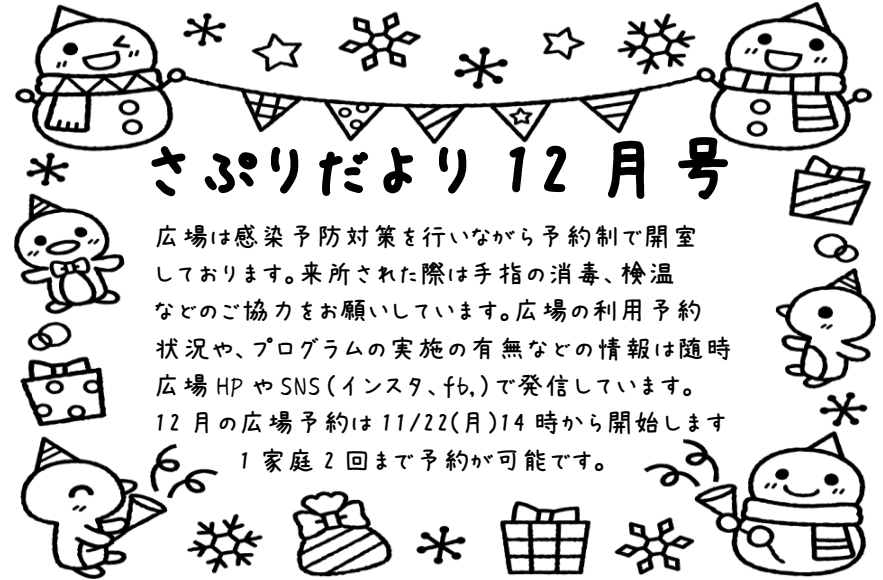 さぷりだより 12 月 号
広場は感染予防対策を行いながら予約制で開室
しております。来所された際は手指の消毒、検温
などのご協力をお願いしています。広場の利用予約
状況や、プログラムの実施の有無などの情報は随時
広場 HP や SNS（インスタ、fb,）で発信しています。
12 月の広場予約は 11/22(月)14 時から開始します
1 家庭 2 回まで予約が可能です。